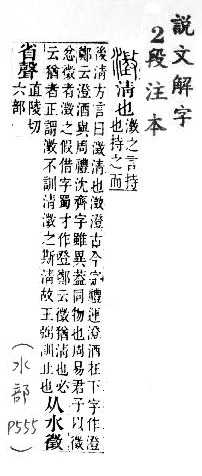 說文解字
2段注本
澂清也
澂之言持
也持之而
後清方言曰澂清也澂澄古今字禮運澄酒在下字作澄
鄭云澄酒與周禮沈齊字雖異葢同物也周易君子以徵
忿徵者澂之假借字蜀才作登鄭云徵猶清也必
云猶者正謂澂不訓清澂之斯清故王弼訓止也
从水徵
省聲
直陵切
六部
(水部 P555)